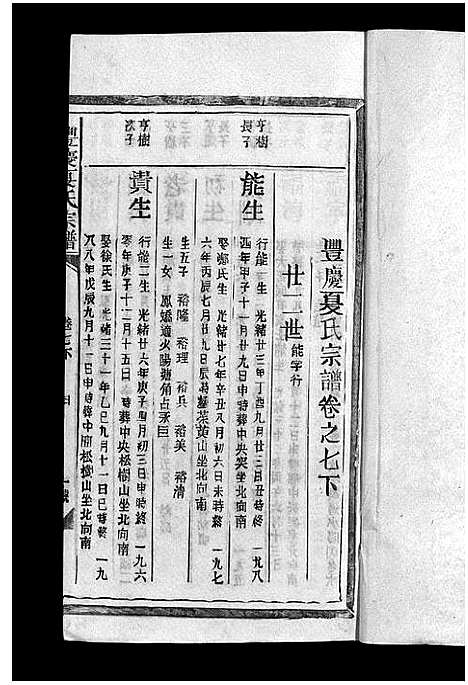 豐慶夏氏宗譜卷之七下
廿二世 能字行
亨樹
長子
能生
行能一 生光緒廿三年丁酉九月廿三日丑時終一九八
四年甲子十一月廿九日申時葬中央 坐北向南
娶鄭氏生光緒廿七年辛丑八月初六日未時終一九七
六年丙辰七月廿 日辰時葬茶黄山坐北向南
生五子 裕隆 裕理 裕兵 裕美 裕清
生一女 鳳嬌適火陽塘角占永巨
亨樹
次子
貴生
行能二生光緒廿六年庚子四月初三日申時終一九六
零年庚子十二月十五日 時葬中央松樹山坐北向南
娶徐氏生光緒三十一年乙巳九月十一日巳時終一九
八八年戊辰九月十二日申時葬中 松樹山坐北向南
豐慶夏氏宗譜
卷七下